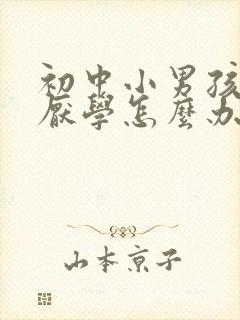 初中小男孩
厭學怎麼办
山本京子